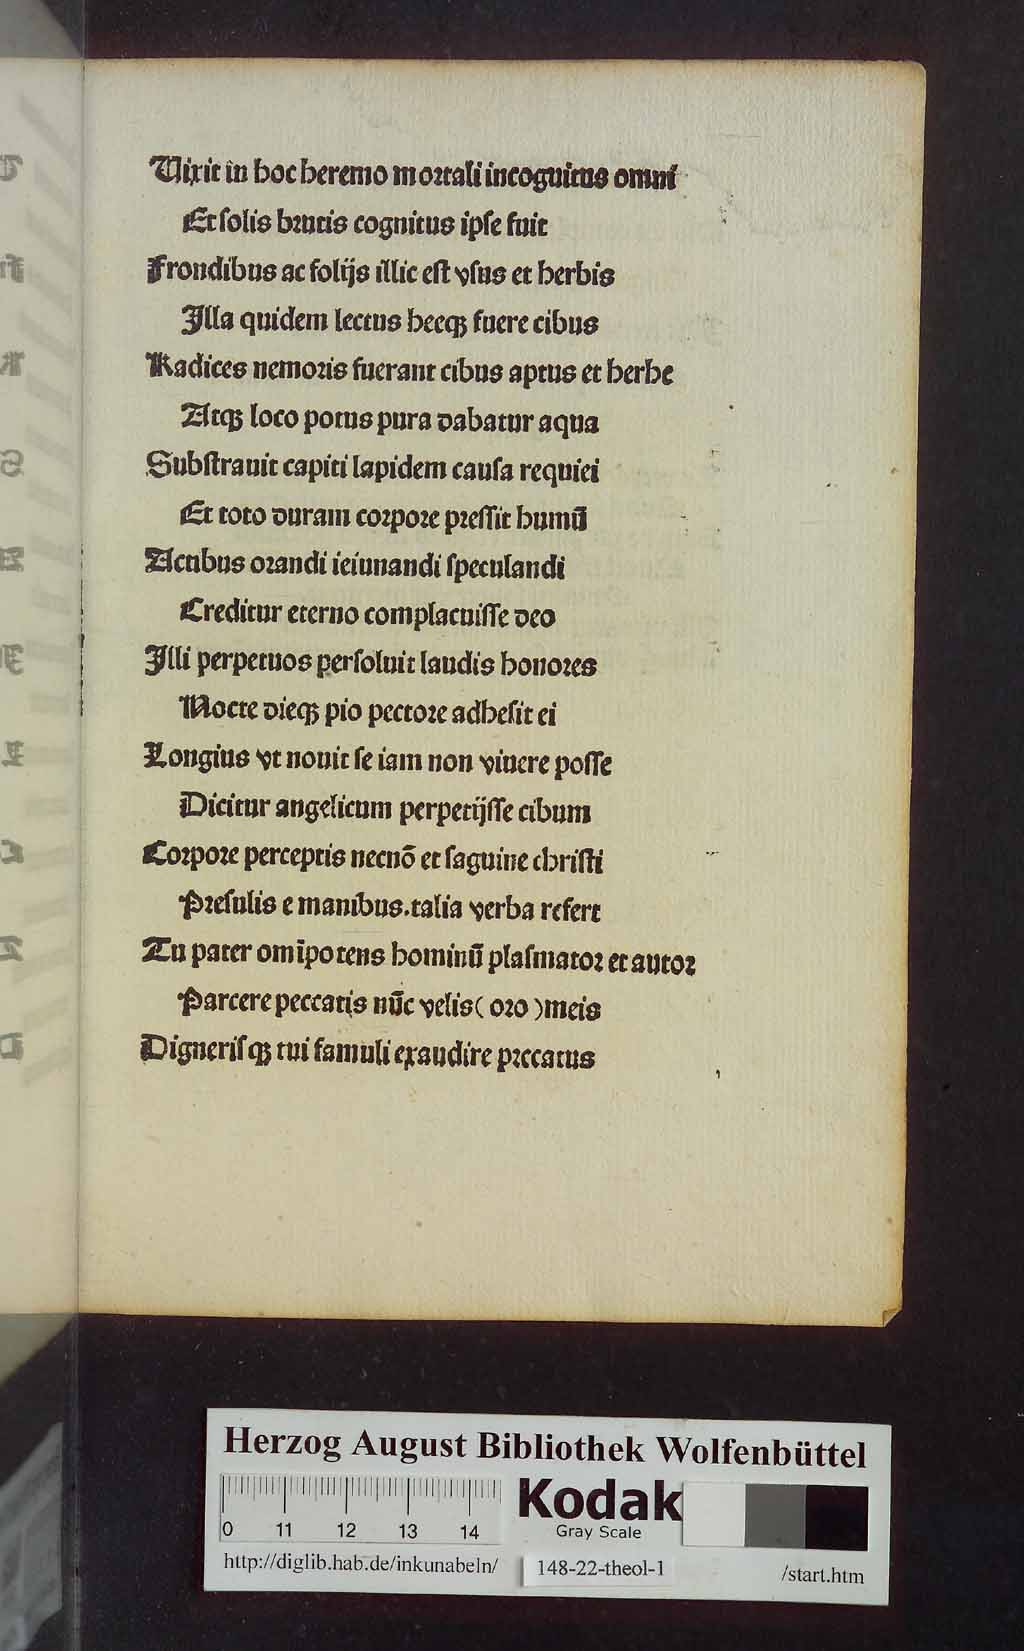 Uixit in hoc heremo mortali incognitus omni
Et ſolis brutis cognitus ipſe fuit
Frondibus ac folijs illic eſt vſus et herbis
Illa quidem lectus heeqꝫ fuere cibus
Radices nemoris fuerant cibus aptus et herbe
Atqꝫ loco potus pura dabatur aqua
Subſtrauit capiti lapidem cauſa requiei
Et toto duram corpore preſſit humū
Actibus orandi ieiunandi ſpeculandi
Creditur eterno complacuiſſe deo
Illi perpetuos perſoluit laudis honores
Nocte dieqꝫ pio pectore adheſit ei
Longius vt nouit ſe iam non viuere poſſe
Dicitur angelicum perpetijſſe cibum
Corpore perceptis necnō et ſaguine chriſti
Preſulis e manibus.talia verba refert
Tu pater omīpotens hominū plaſmator et autor
Parcere peccatis nūc velis( oro )meis
Digneriſqꝫ tui famuli exaudire precatus
Herzog August Bibliothek Wolfenbüttel
Kodak
Gray Scale
0 11 12 13 14
http://diglib.hab.de/inkunabeln/ 148-22-theol-1 /start.htm